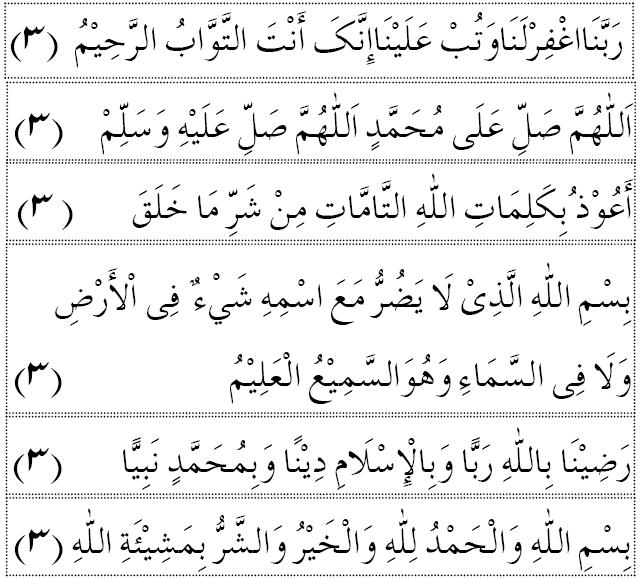 رَبَّنَااغْفِرْلَنَاوَتُبْ عَلَيْنَاإِنَّکَ أَنْتَ التَّوَّابُ الرَّحِيْمُ (٣)
اَللّٰهُمَّ صَلِّ عَلَى مُحَمَّدٍ اَللّٰهُمَّ صَلِّ عَلَيْهِ وَسَلِّمْ (٣)
أَعُوْذُ بِكَلِمَاتِ اللّٰهِ التَّامَّاتِ مِنْ شَرِّ مَا خَلَقَ (٣)
بِسْمِ اللّٰهِ الَّذِىْ لَا يَضُرُّ مَعَ اسْمِهِ شَيْءٌ فِى اْلأَرْضِ
وَلَا فِى السَّمَاءِ وَهُوَالسَّمِيْعُ الْعَلِيْمُ (٣)
رَضِيْنَا بِاللّٰهِ رَبًّا وَبِالْإِسْلَامِ دِيْنًا وَبِمُحَمَّدٍ نَبِيًّا (٣)
بِسْمِ اللّٰهِ وَالْحَمْدُ لِلّٰهِ وَالْخَيْرُ وَالشَّرُّ بِمَشِيْئَةِ اللّٰهِ (٣)